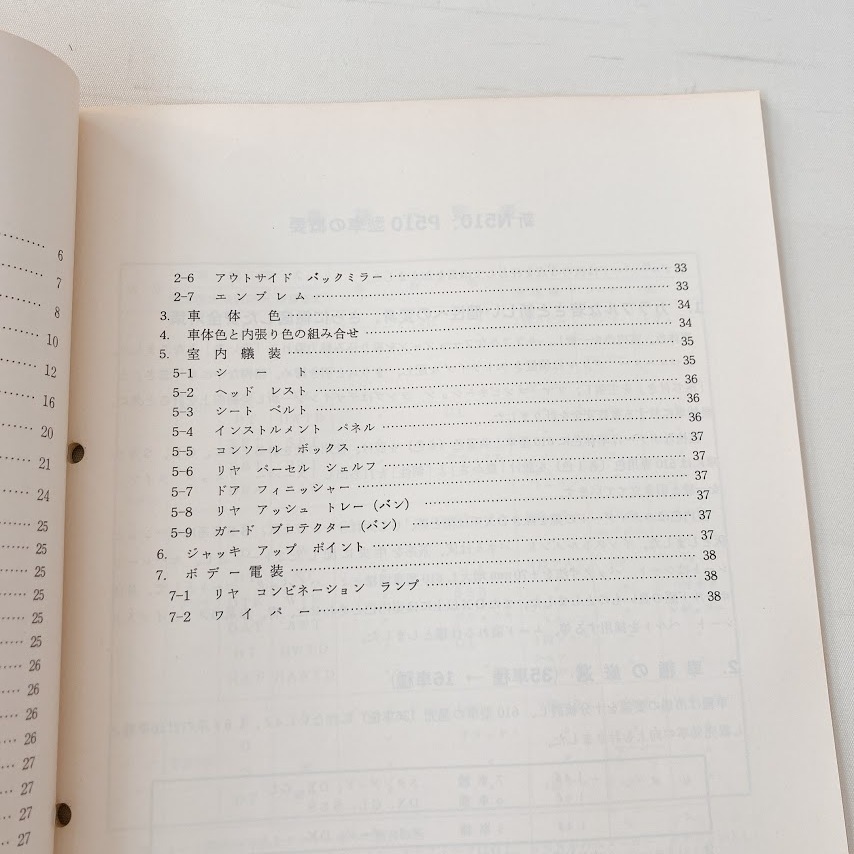 6
7
8
10
12
16
20
21
24
25
25
25
25
25
26
26
26
26
26
27
27
27
27
2-6 アウトサイド バックミラー …… 33
2-7 エンブレム …… 33
3. 車体色 …… 34
4. 車体色と内張り色の組み合せ …… 34
5. 室内艤装 …… 35
5-1 シート …… 35
5-2 ヘッド レスト …… 36
5-3 シート ベルト …… 36
5-4 インストルメント パネル …… 36
5-5 コンソール ボックス …… 37
5-6 リヤ パーセル シェルフ …… 37
5-7 ドア フィニッシャー …… 37
5-8 リヤ アッシュ トレー (バン) …… 37
5-9 ガード プロテクター (バン) …… 37
6. ジャッキ アップ ポイント …… 37
7. ボデー電装 …… 38
7-1 リヤ コンビネーション ランプ …… 38
7-2 ワイパー …… 38